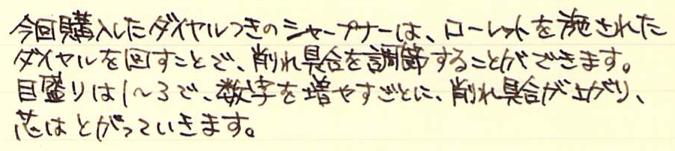 今回購入したダイヤルつきのシャープナーは、ローレットを施された
ダイヤルを回すことで、削れ具合を調節することができます。
目盛りは1~3で、数字を増やすごとに、削れ具合が上がり、
芯はとがっていきます。